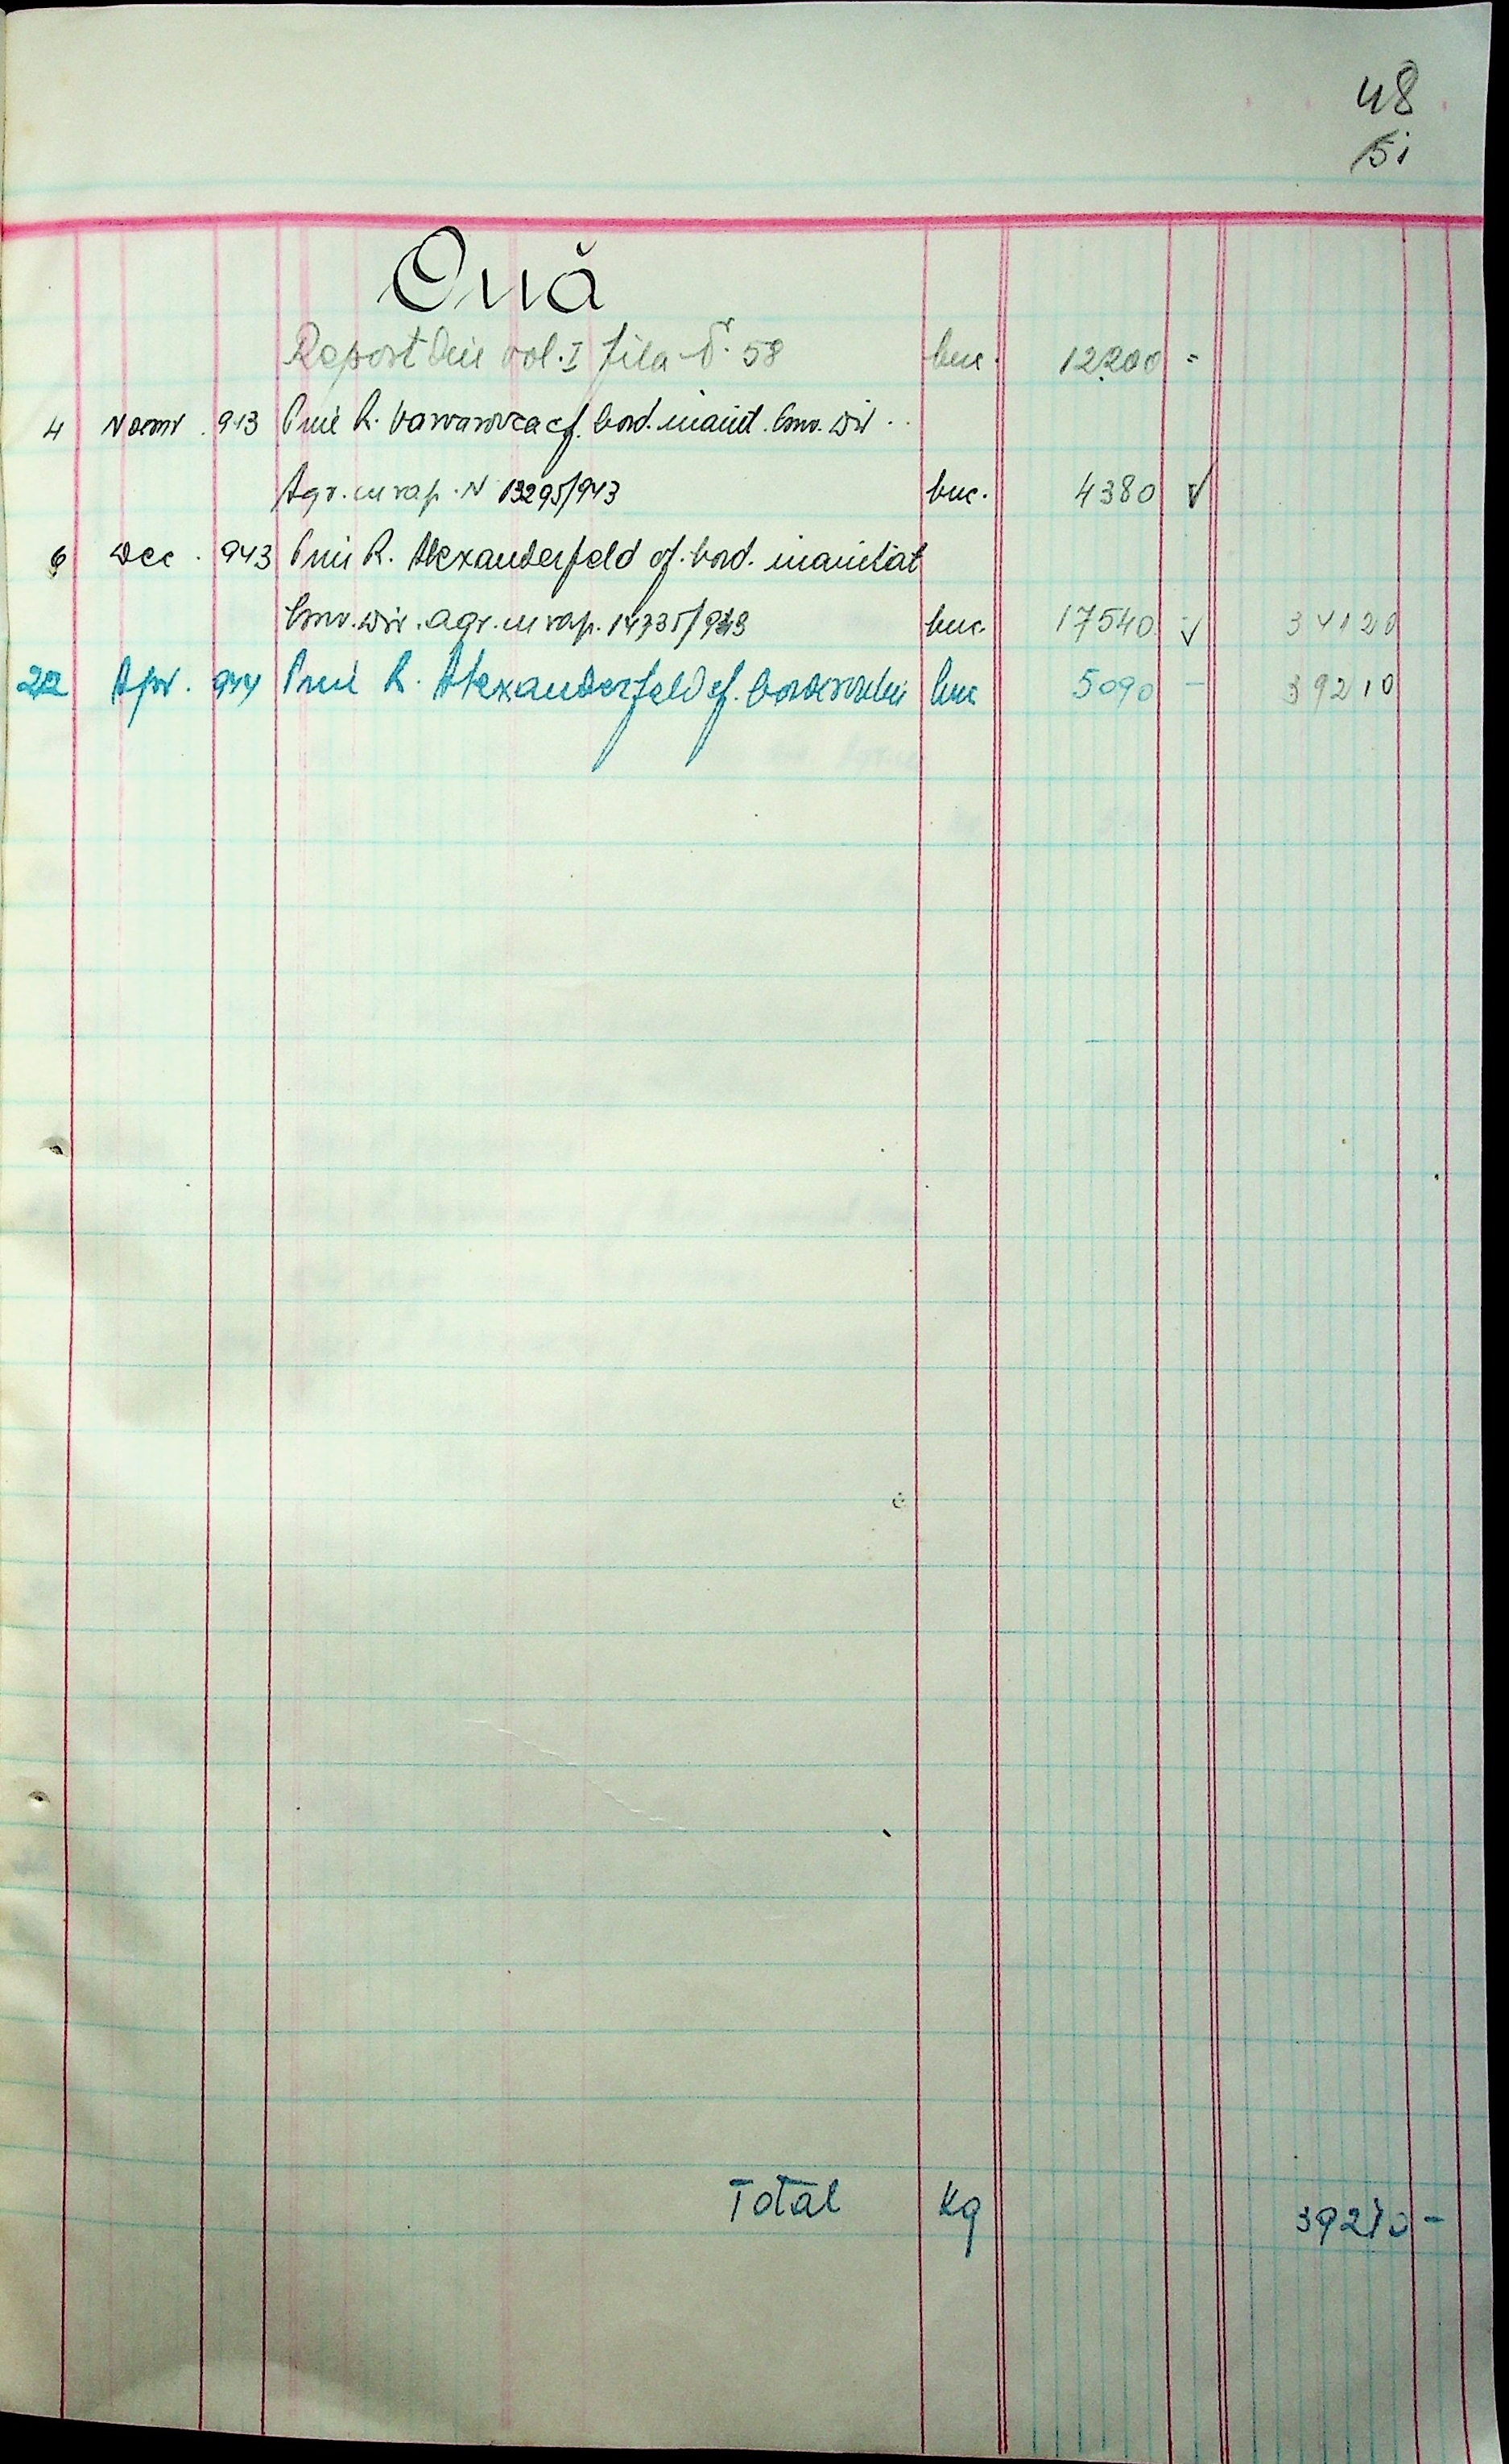 48
51
Ouă
Report din vol. I fila Nr. 58 buc. 12200 =
4 Noemr. 943 Prin R. Varvarovca cf. bord. inaint. Conv. Dir.
Agr. cu rap. N 13295/943 buc. 4380 √
6 Dec. 943 Prin R. Alexanderfeld cf. bord. inaintat
Conv. Dir. Agr. cu rap. 14335/943 buc. 17540 √ 34120
22 Apr. 944 Prin R. Alexanderfeld cf. borderoului buc 5090 - 39210
Total Kg 39210 -